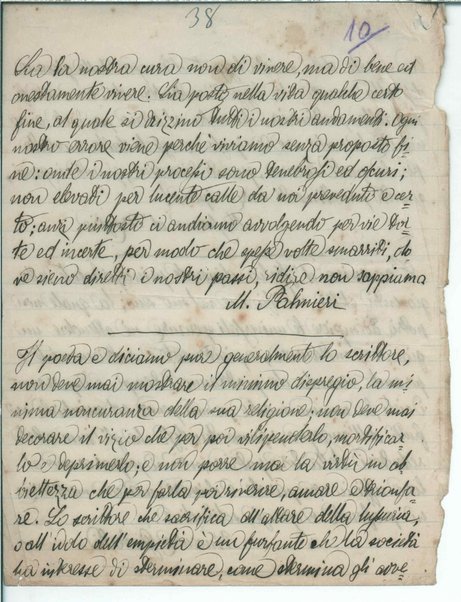 38
10
Sia la nostra cura non di vivere, ma di bene ed
onestamente vivere. Sia posto nella vita qualche certo
fine, al quale si drizzino tutti i nostri andamenti. Ogni
nostro errore viene perchè viviamo senza proposto fi-
ne: onde i nostri processi sono tenebrosi ed oscuri;
non elevati per lucente calle da noi preveduti e cer-
to; anzi piuttosto ci andiamo avvolgendo per vie tor-
te ed incerte, per modo che spesse volte smarriti, do-
ve sieno diretti i nostri passi, ridire non sappiamo
M. Palmieri
Il poeta e diciamo pure generalmente lo scrittore,
non deve mai mostrare il minimo dispregio, la mi-
nima noncuranza della sua religione; non deve mai
decorare il vizio che per poi vilipenderlo, mortificar-
lo e deprimerlo; e non porre mai la virtù in ab
biettezza che per farla poi riverire, amare e trionfa-
re. Lo scrittore che sacrifica all'altare della lussuria,
o all'idolo dell'empietà è un furfante che la società
ha interesse di sterminare, come stermina gli avve-